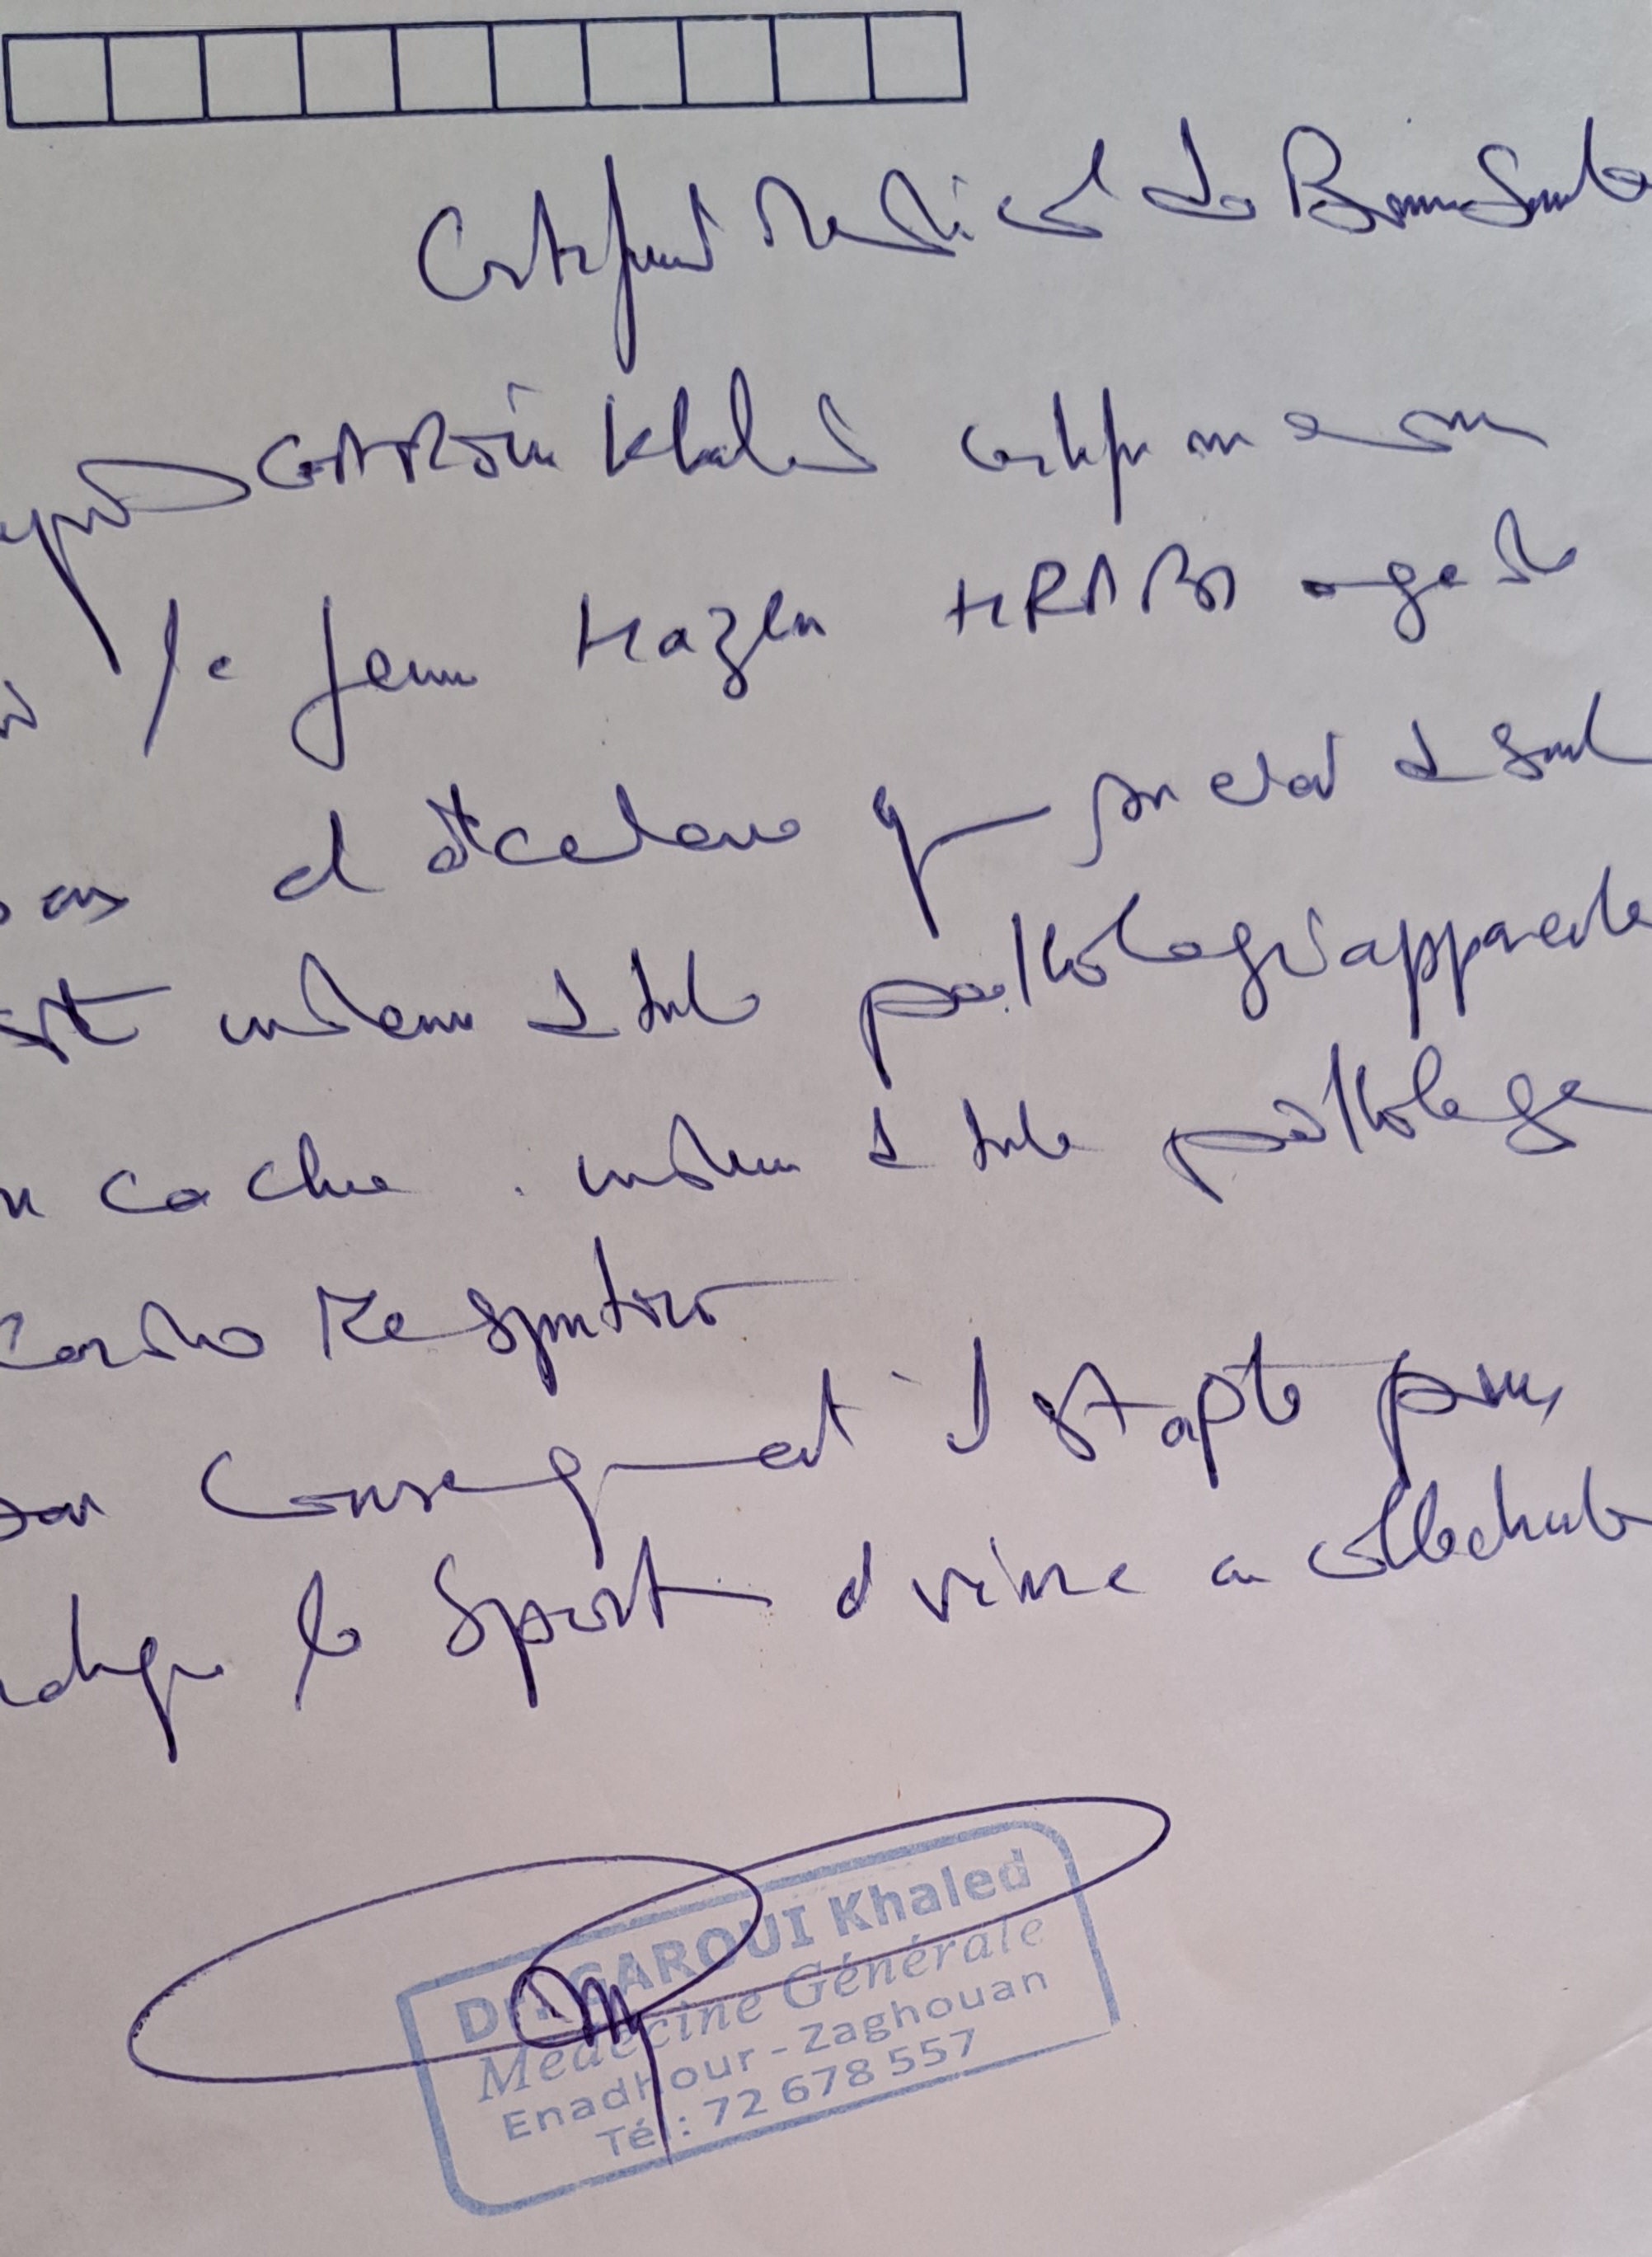 Certificat Médical de Bonne Santé
GAROUI Khaled certifie
le jeune Hazem HRABI age de
ans et déclare que son état de santé
est indemne de toute pathologie apparente
cachée . indemne de toute pathologie
Cardio Respiratoire
par Consequent il est apte pour
le Sport et vivre en collectivité
Dr. GAROUI Khaled
Médecine Générale
Enadhour - Zaghouan
Tél : 72 678 557